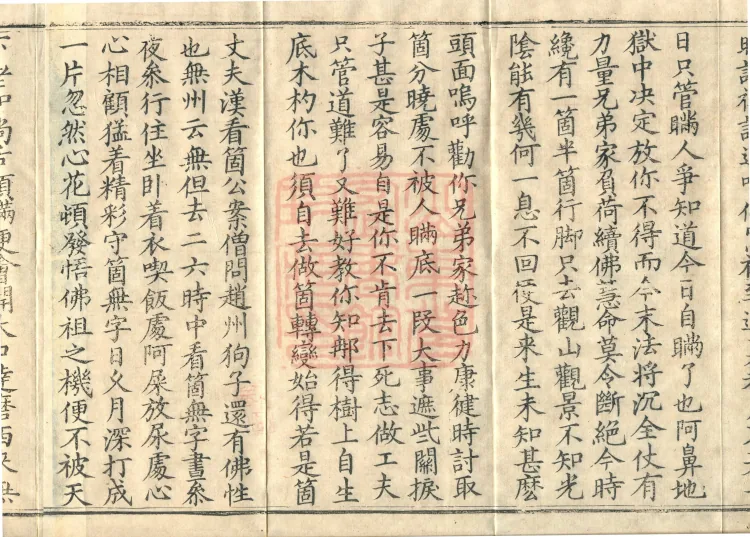 日只管瞞人爭知道今日自瞞了也阿鼻地
獄中决定放你不得而今末法將沉全仗有
力量兄弟家負荷續佛慧命莫令斷絕今時
纔有一箇半箇行脚只去觀山觀景不知光
陰能有幾何一息不回便是来生未知甚麽
頭面嗚呼勸你兄弟家趂色力康健時討取
箇分曉處不被人瞞底一段大事遮些關捩
子甚是容易自是你不肯去下死志做工夫
只管道難了又難好教你知那得樹上自生
底木杓你也須自去做箇轉變始得若是箇
丈夫漢看箇公案僧問趙州狗子還有佛性
也無州云無但去二六時中看箇無字晝叅
夜叅行住坐卧着衣喫飯處阿屎放尿處心
心相顧猛着精彩守箇無字日久月深打成
一片忽然心花頓發悟佛祖之機便不被天
舌頭瞞便會開大口達磨西来